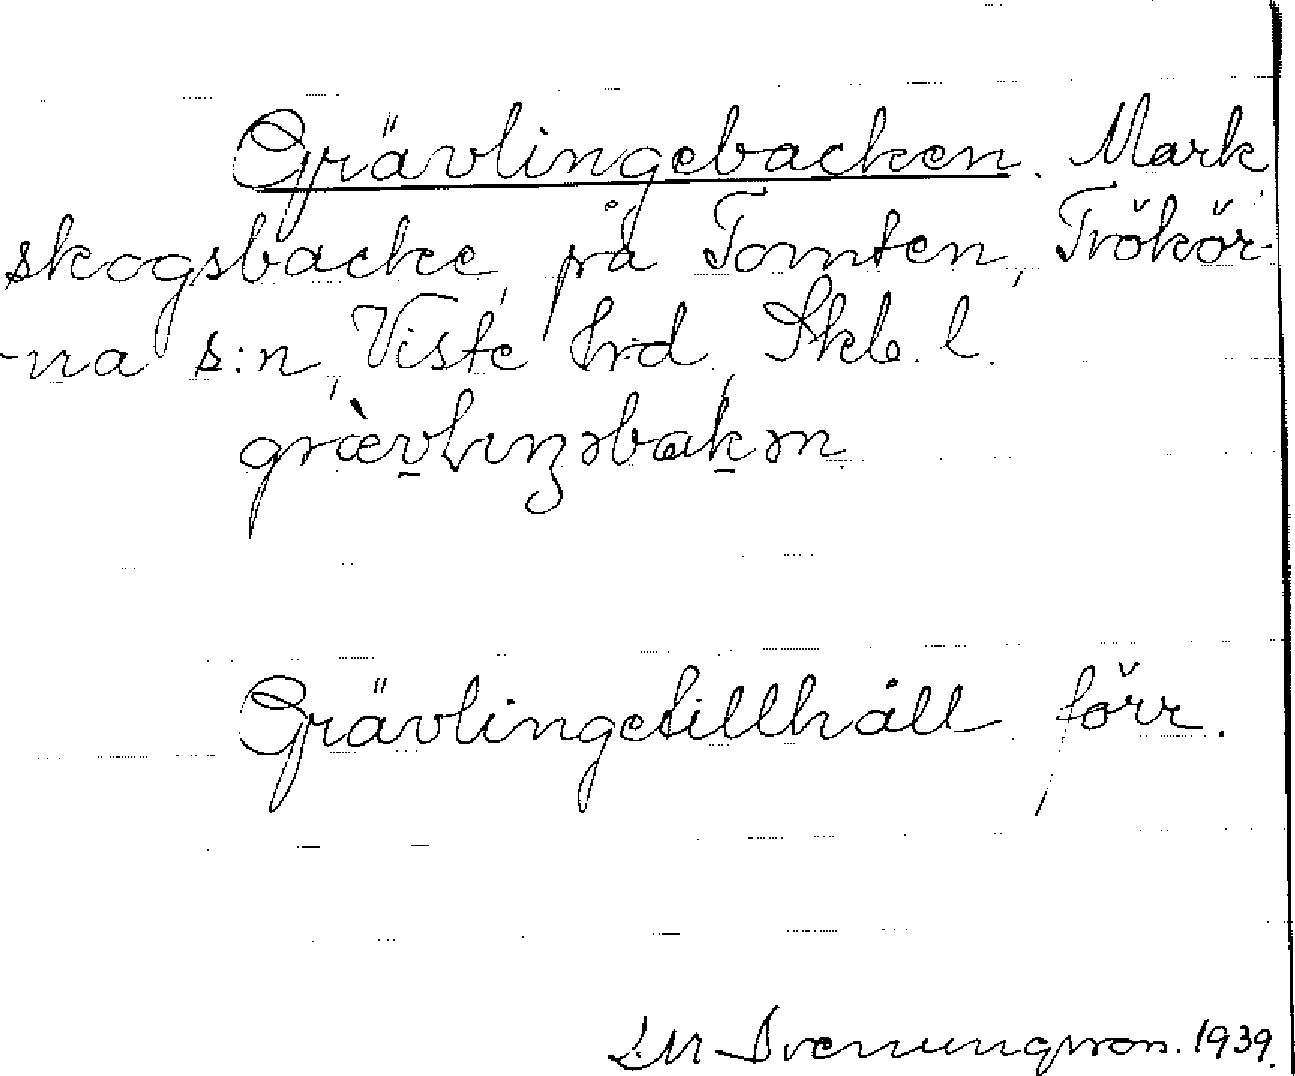 Grävlingebacken. Mark
skogsbacke på Tomten, Trökör-
-na s:n, Viste hrd, Skb. l.
grævlıŋəbakən
Grävlingetillhåll förr.
LM Svenungsson. 1939.